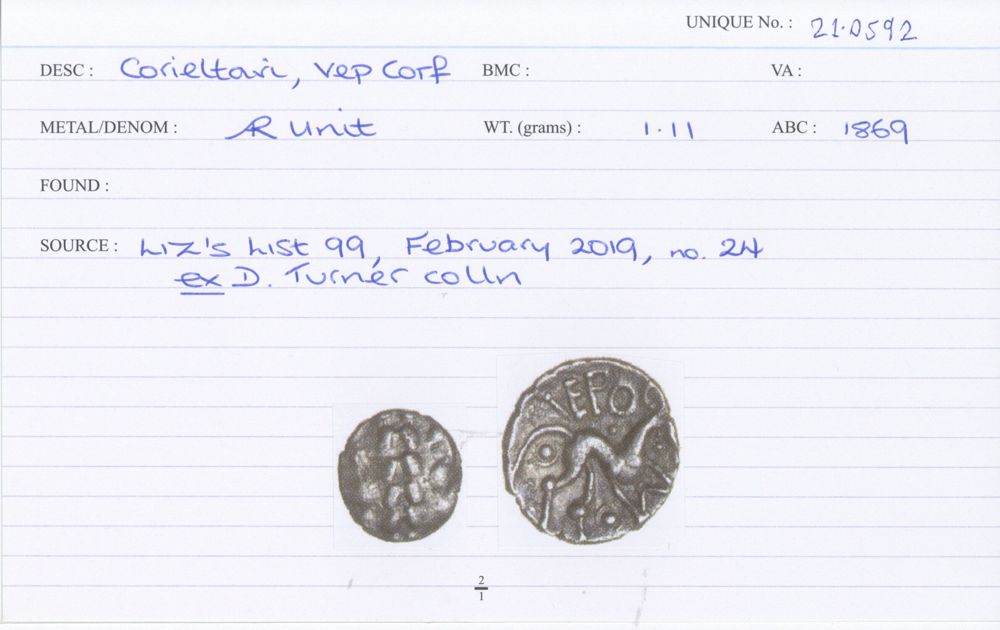 UNIQUE No. : 21.0592
DESC : Corieltavi, Vep Corf BMC : VA :
METAL/DENOM : AR Unit WT. (grams) : 1.11 ABC : 1869
FOUND :
SOURCE : Liz's List 99, February 2019, no. 24
ex D. Turner colln
VEPO
2
1